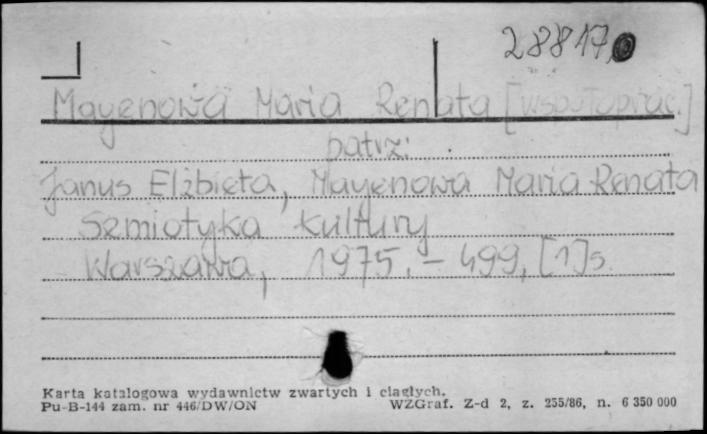 28817
Mayenowa Maria Renata [współoprac.]
patrz:
Janus Elżbieta, Mayenowa Maria Renata
Semiotyka kultury
Warszawa, 1975. – 499, [1] s.
Karta katalogowa wydawnictw zwartych i ciągłych.
Pu-B-144 zam. nr 446/DW/ON WZGraf. Z-d 2, z. 255/86, n. 6 350 000